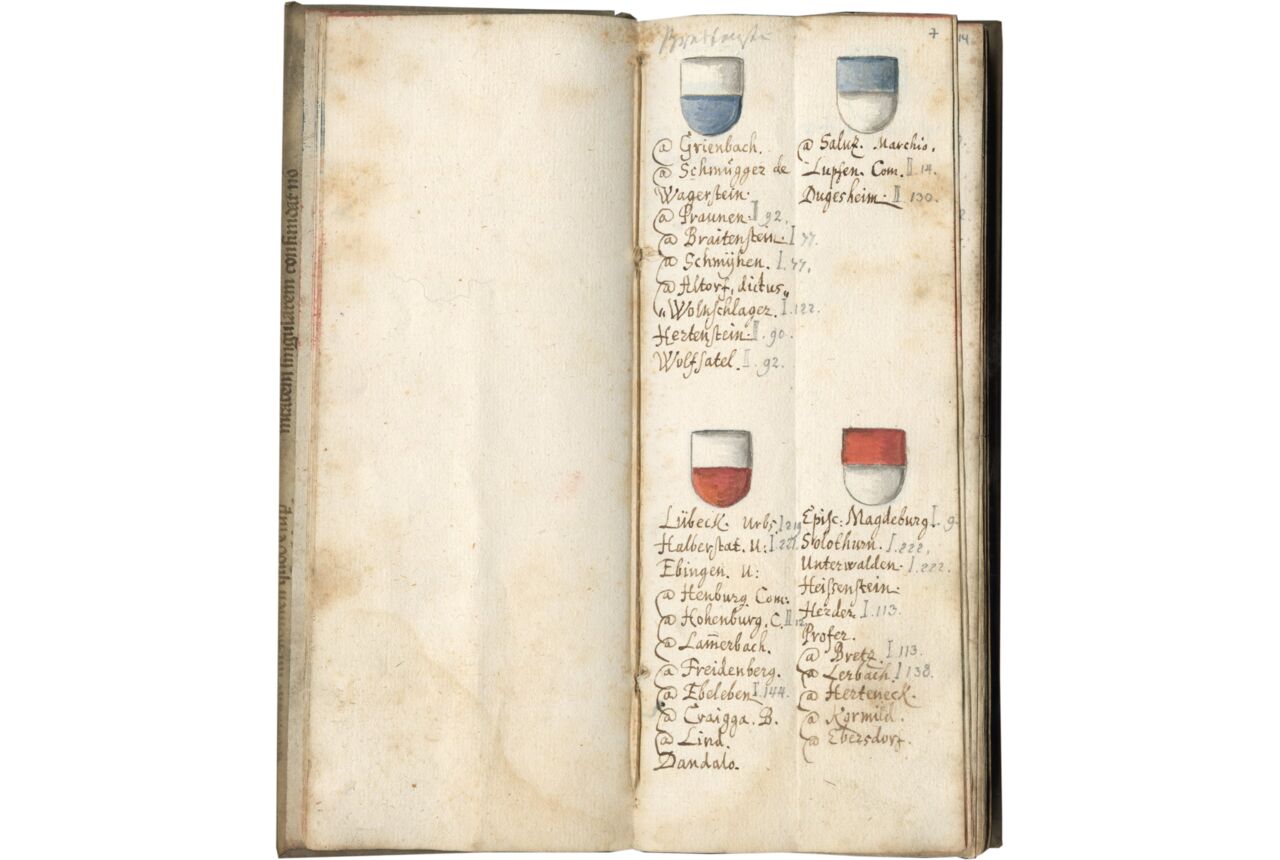 7
14
@ Grienbach.
@ Schmügger de
Wagerstein.
@ Praunen. II 92.
@ Braitenstein. I 77.
@ Schmÿhen. I. 77.
@ Altorf, dictus„
„Wolnschlager. I. 122.
Hertenstein. II. 90.
Wolfsatel. II. 92.
@ Saluz. Marchio.
Lupfen. Com. II. 14.
Dugesheim. II. 130.
Lübeck. Urbs. I 219
Halberstat. U: I 221.
Ebingen. U:
@ Henburg. Com:
@ Hohenburg. C. II 12
@ Lam̄erbach.
@ Freidenberg.
@ Ebeleben I. 144.
@ Craigga. B.
@ Lind.
Dandalo.
Episc: Magdeburg I. 9
Solothurn. I. 222.
Unterwalden. I. 222.
Heissenstein.
Herder. I. 113.
Profer.
@ Bretz. I 113.
@ Lerbach. I 138.
@ Herteneck.
@ Kormild.
@ Ebersdorf.